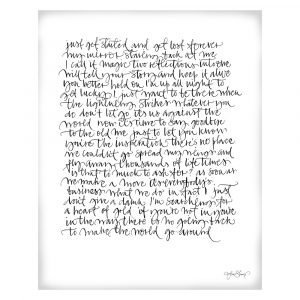 just get started and get lost forever
my mirror staring back at me
I call it magic two reflections into one
will tell your story and keep it alive
you better hold on I'm up all night to
get lucky I just want to be there when
the lightning strikes whatever you
do don't let go it's us against the
world now it's time to say goodbye
to the old me just to let you know
you're the inspiration there's no place
we couldn't go spread my wings and
fly away thousands of life times
is that to much to ask for? as soon as
we make a move it's everybody's
business what we do in fact I just
don't give a damn I'm searching for
a heart of gold if you're not in you're
in the way there to no going back
to make the world go around